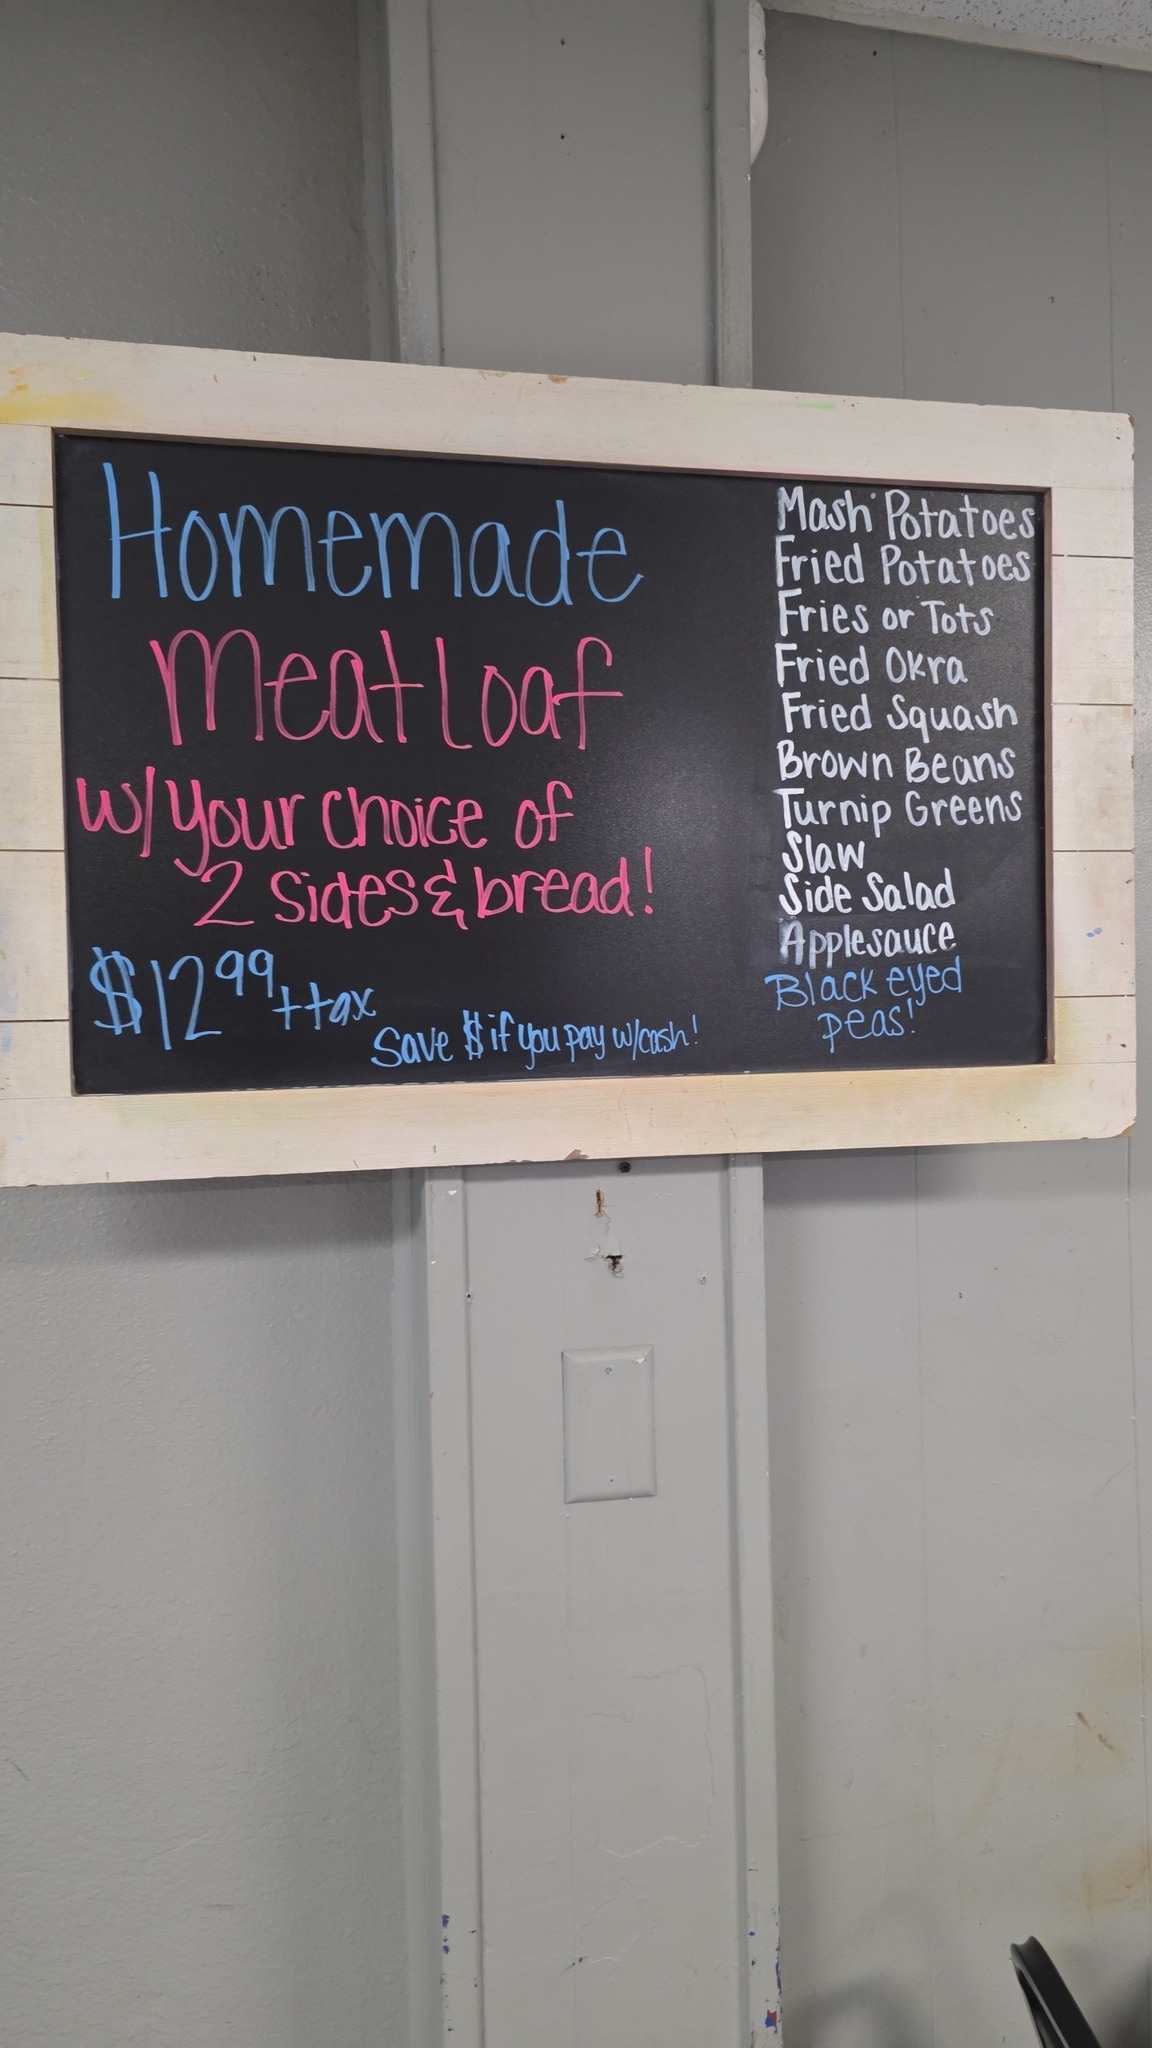 Homemade
Meatloaf
w/your choice of
2 sides & bread!
$12.99 + tax
Save $ if you pay w/cash!
Mash Potatoes
Fried Potatoes
Fries or Tots
Fried Okra
Fried Squash
Brown Beans
Turnip Greens
Slaw
Side Salad
Applesauce
Black eyed
peas!